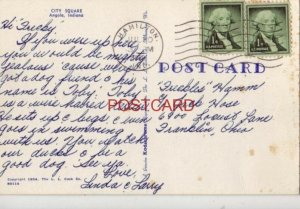 CITY SQUARE
Angola, Indiana
Hi Frecky
If you were up here
you would be mighty
jealous cause we
got a dog friend & his
name is Toby. Toby
is a wire haired
sits up & begs & even
goes in swimming
with us. You watch
our ducks & be a
good dog. See ya
Love,
Linda & Larry
Copyright 1954, The L. L. Cook Co.
HAMILTON
POST CARD
"Freckles" Hamm
% Bob Hose
6900 Locust Lane
Franklin, Ohio
POSTCARD